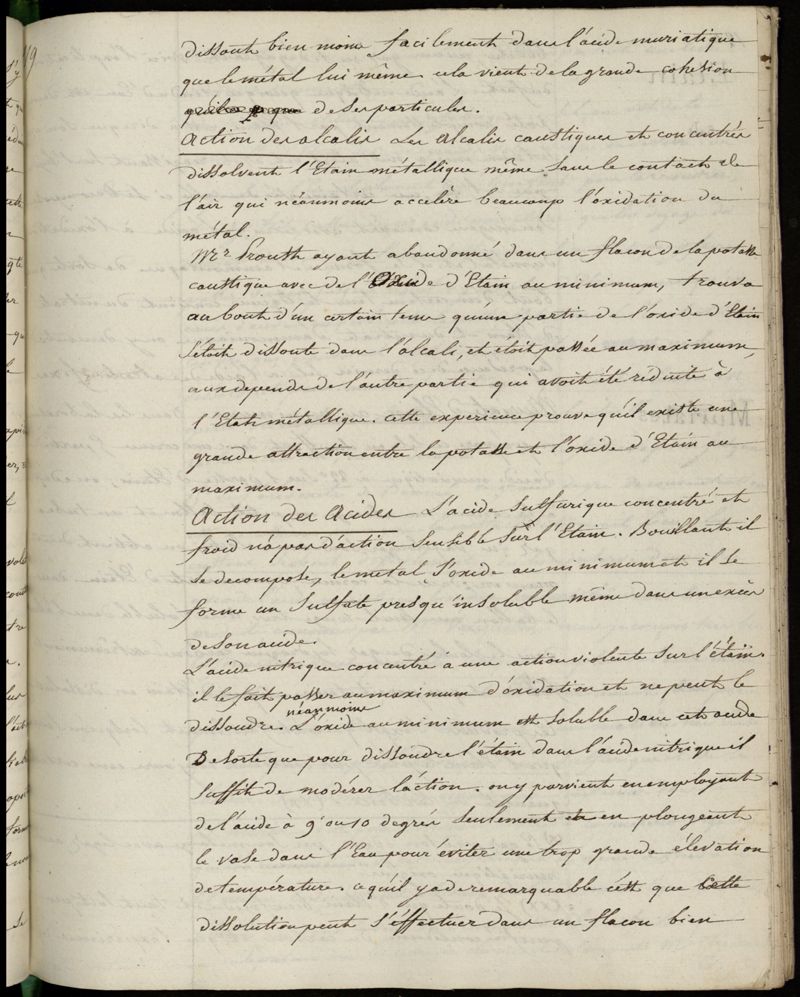 dissout bien moins facilement dans l'acide muriatique
que le métal lui même cela vient de la grande cohésion
de ses particules.
Action des alcalis Les Alcalis caustiques et concentrés
dissolvent l'Etain métallique même sans le contact de
l'air qui néanmoins accelère beaucoup l'oxidation du
métal.
Mr Prousth ayant abandonné dans un flacon de la potasse
caustique avec de l'Oxide d'Etain au minimum, trouva
au bout d'un certain tems qu'une partie de l'oxide d'Etain
s'étoit dissoute dans l'alcali, et étoit passée au maximum,
aux depends de l'autre partie qui avoit été réduite à
l'Etat métallique. cette experience prouve qu'il existe une
grande attraction entre la potasse et l'oxide d'Etain au
maximum.
Action des Acides L'acide Sulfurique concentré et
froid n'a pas d'action Sensible Sur l'Etain. Bouillant il
Se decompose, le metal S'oxide au minimum et il Se
forme un Sulfate presqu'insoluble même dans un excès
de son acide.
L'acide nitrique concentré à une action violente Sur l'étain.
il le fait passer au maximum d'oxidation et ne peut le
néanmoins
dissoudre. L'oxide au minimum est Soluble dans cet acide
De sorte que pour dissoudre l'étain dans l'acide nitrique il
Suffit de modérer l'action. on y parvient en employant
de l'acide à 9 ou 10 degrés Seulement et en plongeant
le vase dans l'Eau pour éviter une trop grande élévation
de température. ce qu'il y a de remarquable c'est que Cette
dissolution peut S'éffectuer dans un flacon bien